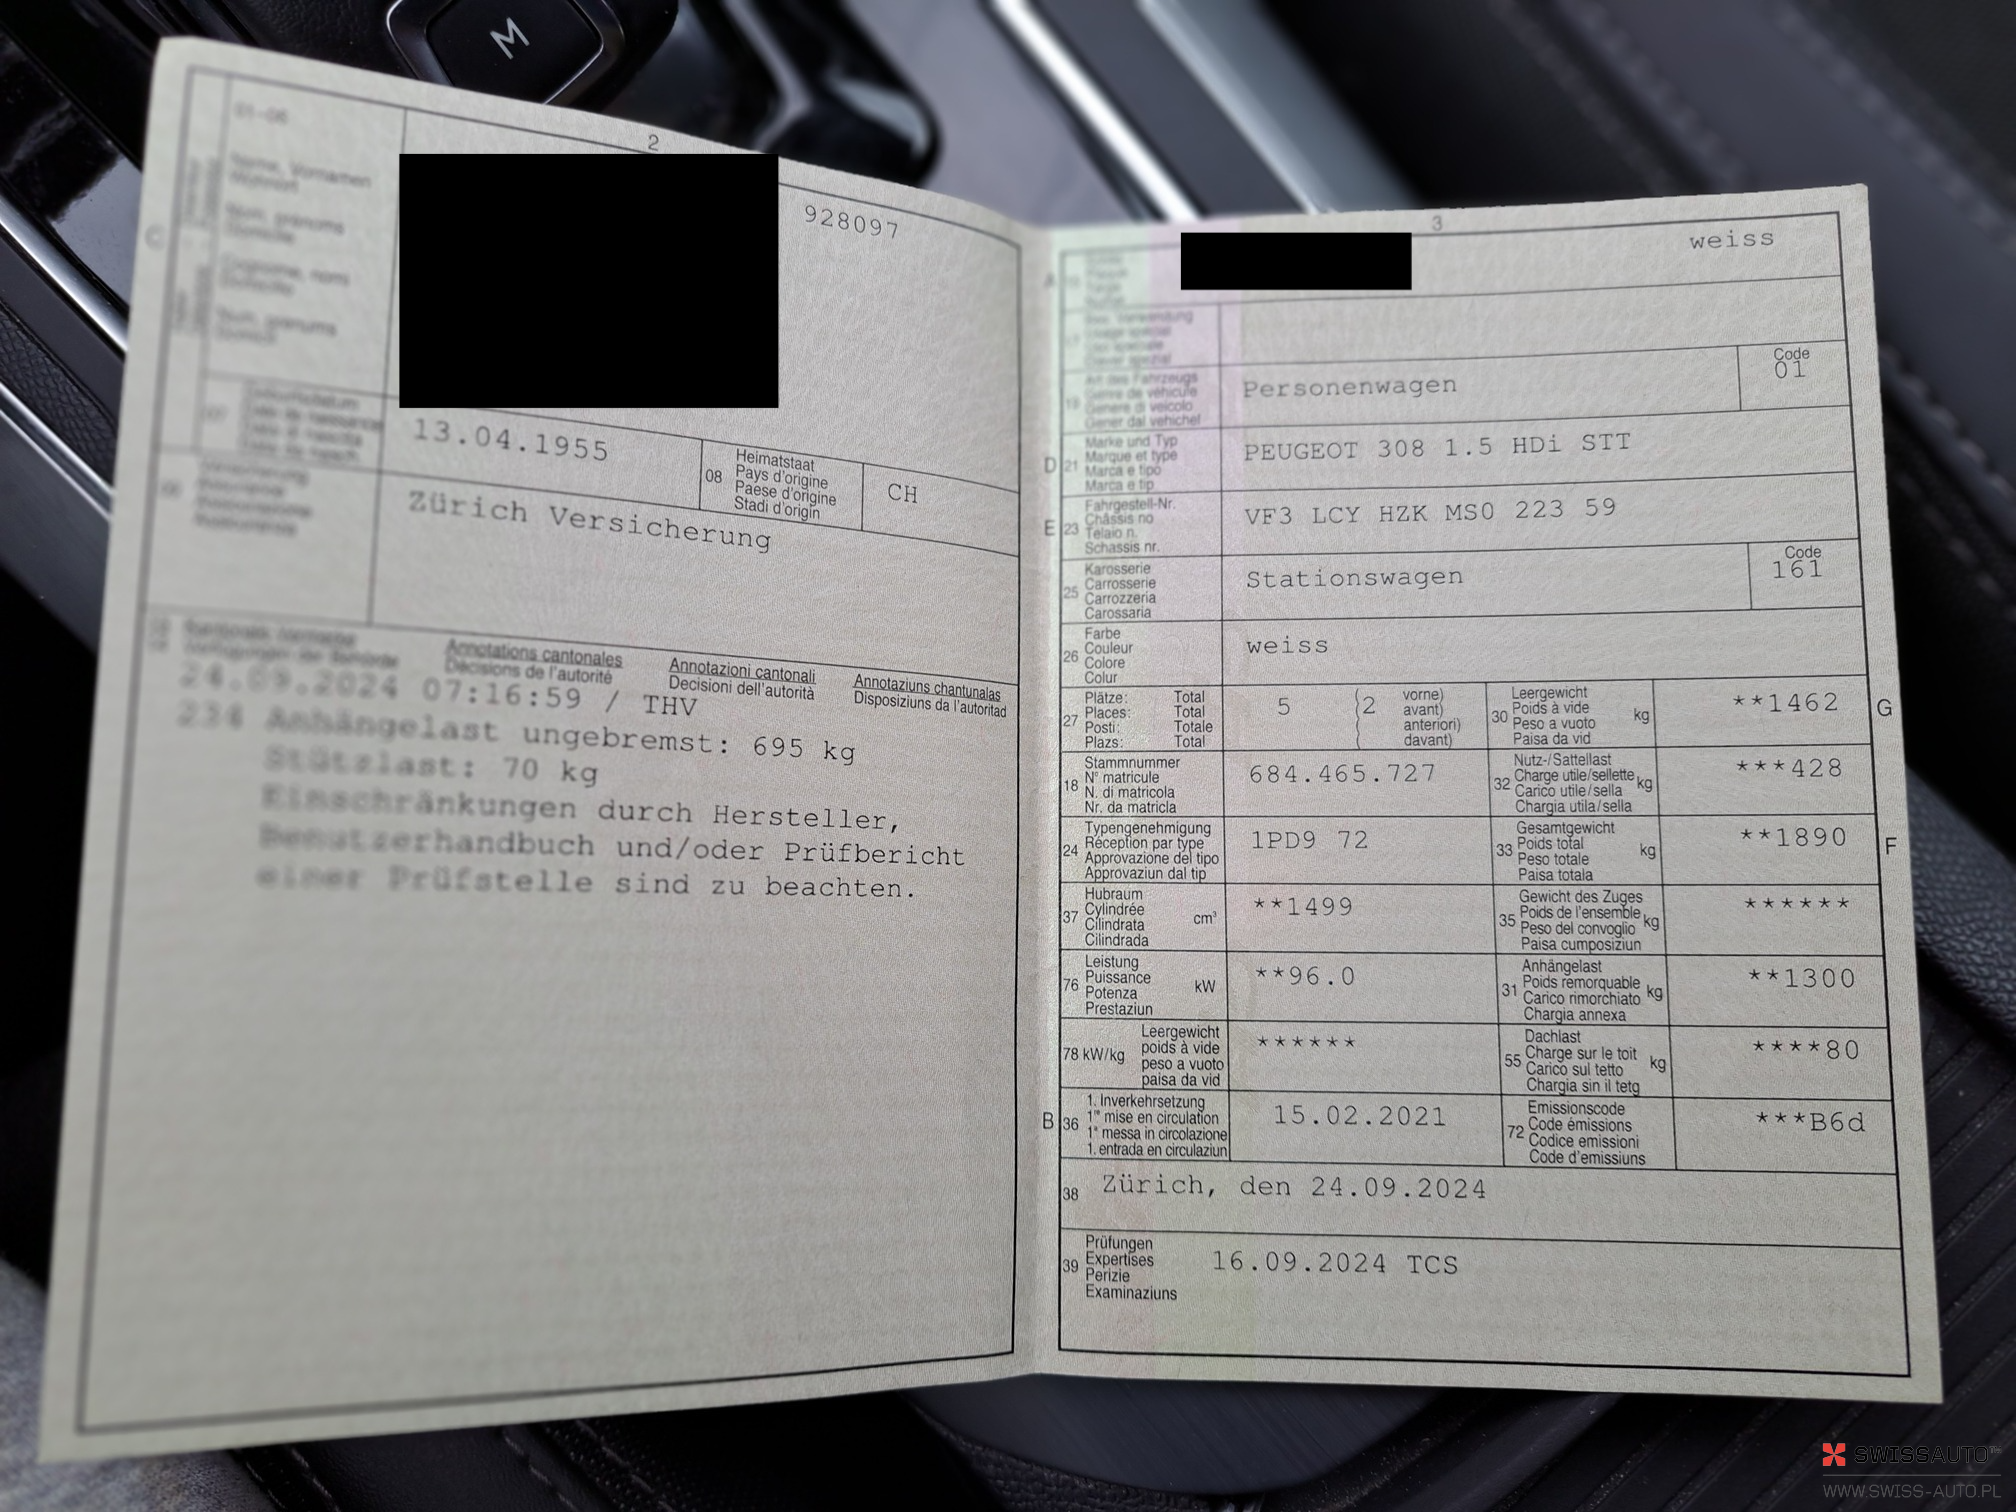 M
2
01-06
Name, Vornamen
Wohnort
Nom, prénoms
Domicile
Cognome, nomi
Domicilio
Num, prenums
C
928097
07
13.04.1955
08
Heimatstaat
Pays d'origine
Paese d'origine
Stadi d'origin
CH
Zürich Versicherung
Annotations cantonales
Décisions de l'autorité
Annotazioni cantonali
Decisioni dell'autorità
Annotaziuns chantunalas
Disposiziuns da l'autoritad
24.09.2024 07:16:59 / THV
234 Anhängelast ungebremst: 695 kg
Stützlast: 70 kg
Einschränkungen durch Hersteller,
Benutzerhandbuch und/oder Prüfbericht
einer Prüfstelle sind zu beachten.
3
A
weiss
19
Art des Fahrzeugs
Genre de véhicule
Genere di veicolo
Gener dal vehichel
Personenwagen
Code
01
D 21
Marke und Typ
Marque et type
Marca e tipo
Marca e tip
PEUGEOT 308 1.5 HDi STT
E 23
Fahrgestell-Nr.
Châssis no
Telaio n.
Schassis nr.
VF3 LCY HZK MS0 223 59
25
Karosserie
Carrosserie
Carrozzeria
Carossaria
Stationswagen
Code
161
26
Farbe
Couleur
Colore
Colur
weiss
27
Plätze: Total
Places: Total
Posti: Totale
Plazs: Total
5
(2
vorne)
avant)
anteriori)
davant)
30
Leergewicht
Poids à vide
Peso a vuoto
Paisa da vid
kg
**1462
G
18
Stammnummer
N° matricule
N. di matricola
Nr. da matricla
684.465.727
32
Nutz-/Sattellast
Charge utile/sellette
Carico utile/sella
Chargia utila/sella
kg
***428
24
Typengenehmigung
Réception par type
Approvazione del tipo
Approvaziun dal tip
1PD9 72
33
Gesamtgewicht
Poids total
Peso totale
Paisa totala
kg
**1890
F
37
Hubraum
Cylindrée
Cilindrata
Cilindrada
cm³
**1499
35
Gewicht des Zuges
Poids de l'ensemble
Peso del convoglio
Paisa cumposiziun
kg
******
76
Leistung
Puissance
Potenza
Prestaziun
kW
**96.0
31
Anhängelast
Poids remorquable
Carico rimorchiato
Chargia annexa
kg
**1300
78 kW/kg
Leergewicht
poids à vide
peso a vuoto
paisa da vid
******
55
Dachlast
Charge sur le toit
Carico sul tetto
Chargia sin il tetg
kg
****80
B 36
1. Inverkehrsetzung
1re mise en circulation
1a messa in circolazione
1. entrada en circulaziun
15.02.2021
72
Emissionscode
Code émissions
Codice emissioni
Code d'emissiuns
***B6d
38
Zürich, den 24.09.2024
39
Prüfungen
Expertises
Perizie
Examinaziuns
16.09.2024 TCS
SWISSAUTO
WWW.SWISS-AUTO.PL